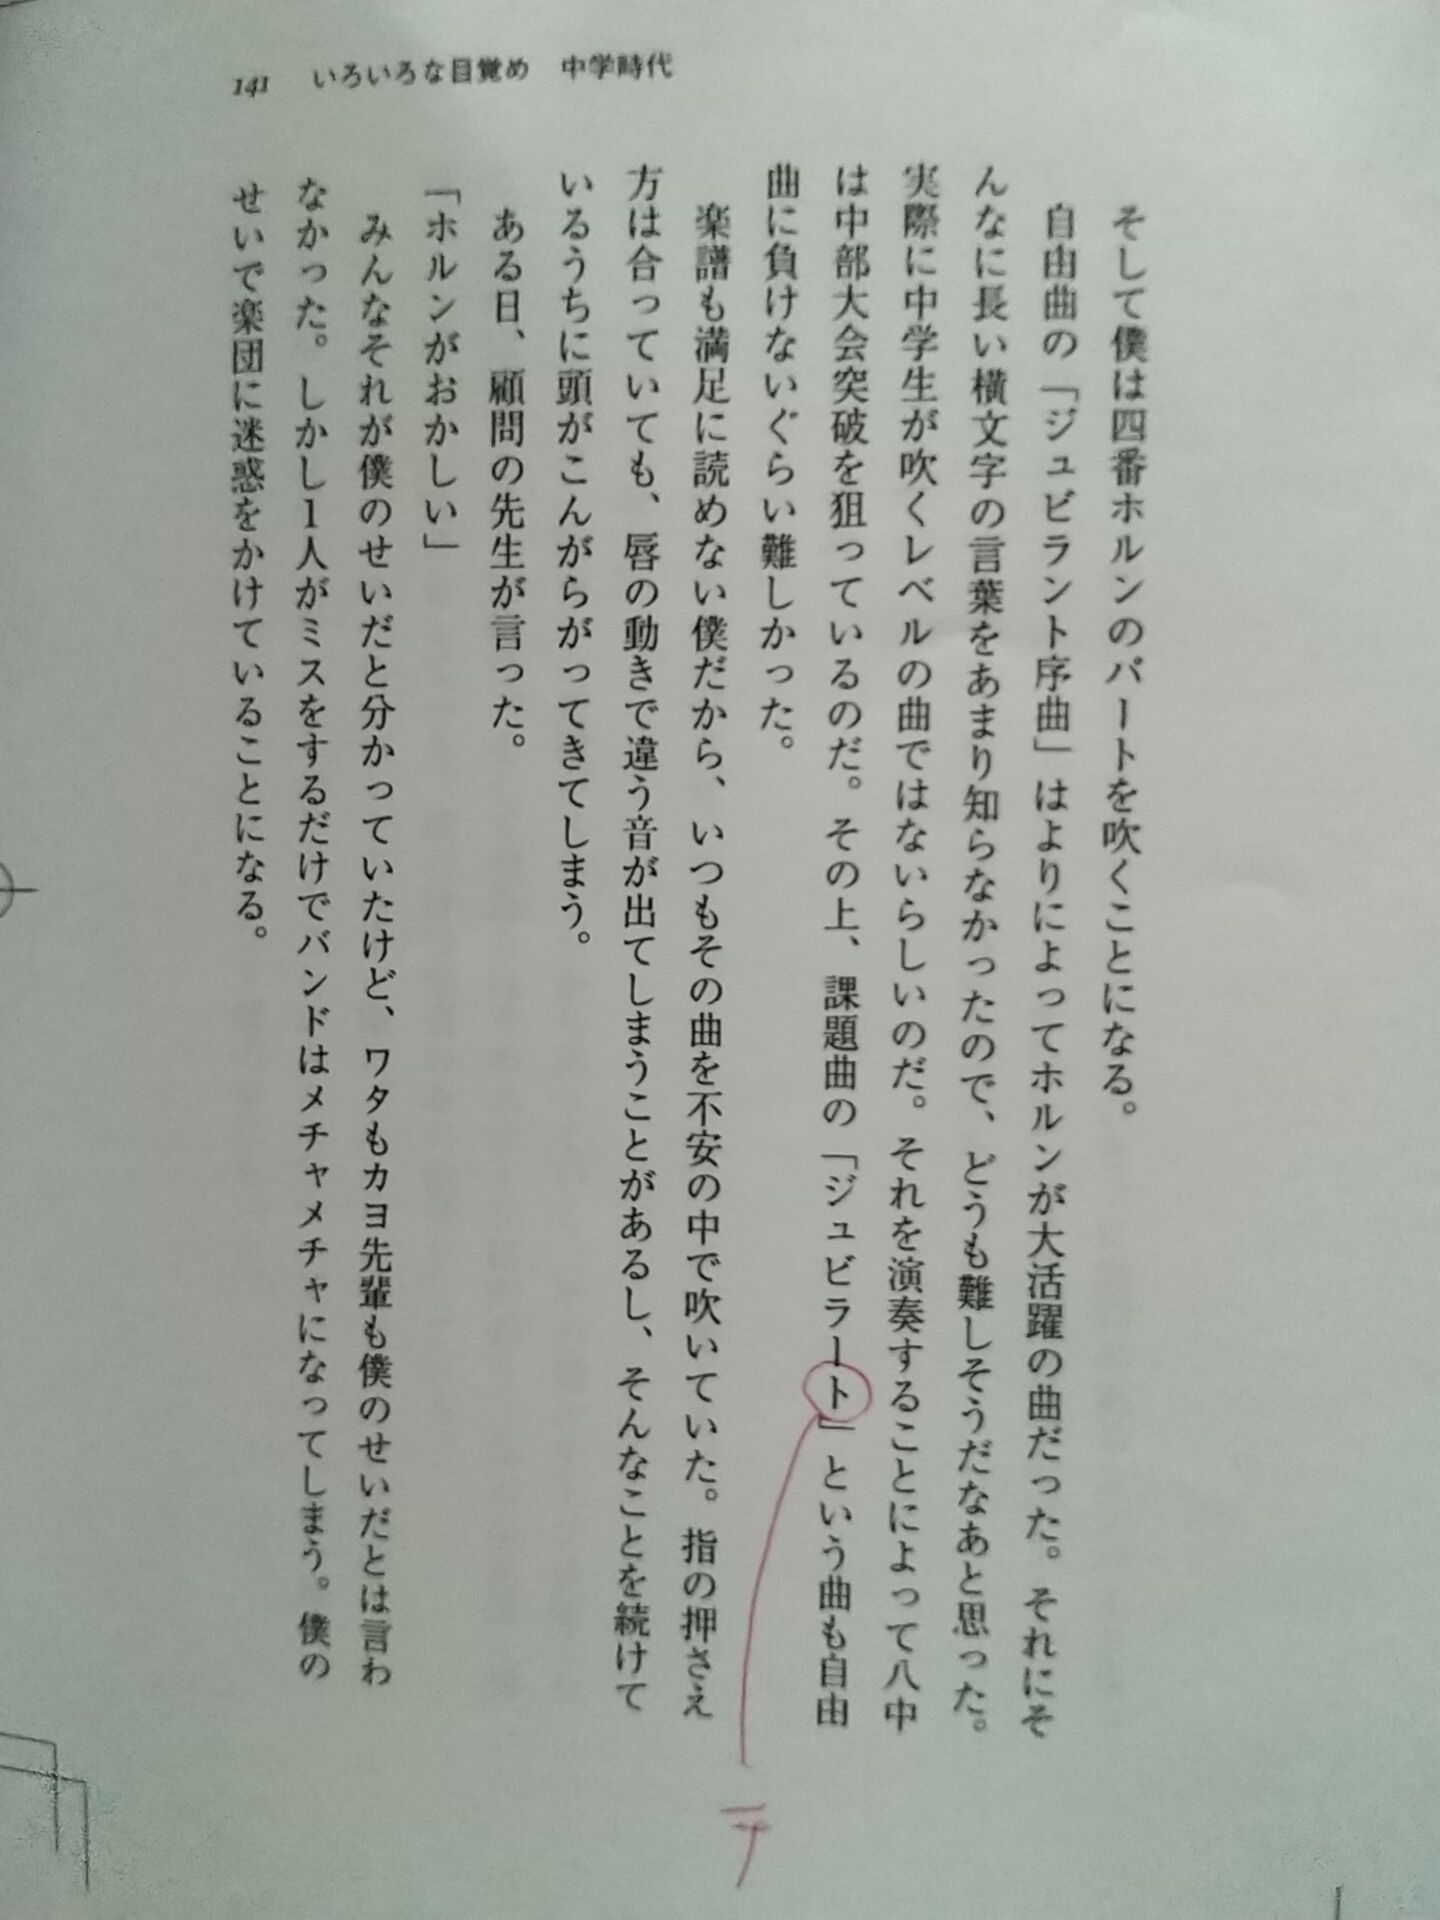 141 いろいろな目覚め 中学時代
そして僕は四番ホルンのパートを吹くことになる。
自由曲の「ジュビラント序曲」はよりによってホルンが大活躍の曲だった。それにそ
んなに長い横文字の言葉をあまり知らなかったので、どうも難しそうだなあと思った。
実際に中学生が吹くレベルの曲ではないらしいのだ。それを演奏することによって八中
は中部大会突破を狙っているのだ。その上、課題曲の「ジュビラート」という曲も自由
曲に負けないぐらい難しかった。
楽譜も満足に読めない僕だから、いつもその曲を不安の中で吹いていた。指の押さえ
方は合っていても、唇の動きで違う音が出てしまうことがあるし、そんなことを続けて
いるうちに頭がこんがらがってきてしまう。
ある日、顧問の先生が言った。
「ホルンがおかしい」
みんなそれが僕のせいだと分かっていたけど、ワタもカヨ先輩も僕のせいだとは言わ
なかった。しかし1人がミスをするだけでバンドはメチャメチャになってしまう。僕の
せいで楽団に迷惑をかけていることになる。
テ